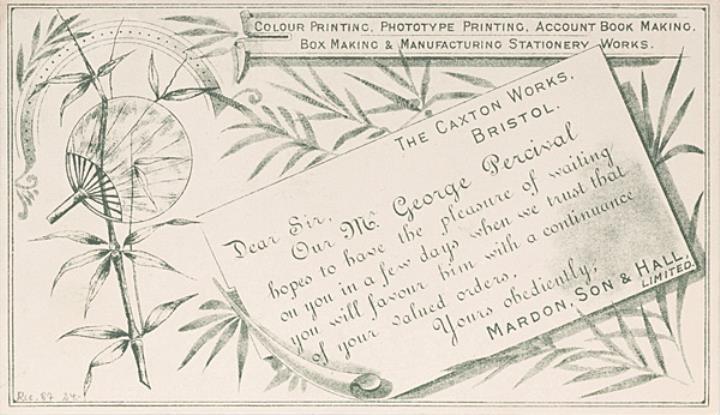 COLOUR PRINTING, PHOTOTYPE PRINTING, ACCOUNT BOOK MAKING,
BOX MAKING & MANUFACTURING STATIONERY WORKS.
THE CAXTON WORKS,
BRISTOL.
Dear Sir,
Our Mr. George Percival
hopes to have the pleasure of waiting
on you in a few days when we trust that
you will favour him with a continuance
of your valued orders,
Yours obediently,
MARDON, SON & HALL,
LIMITED.